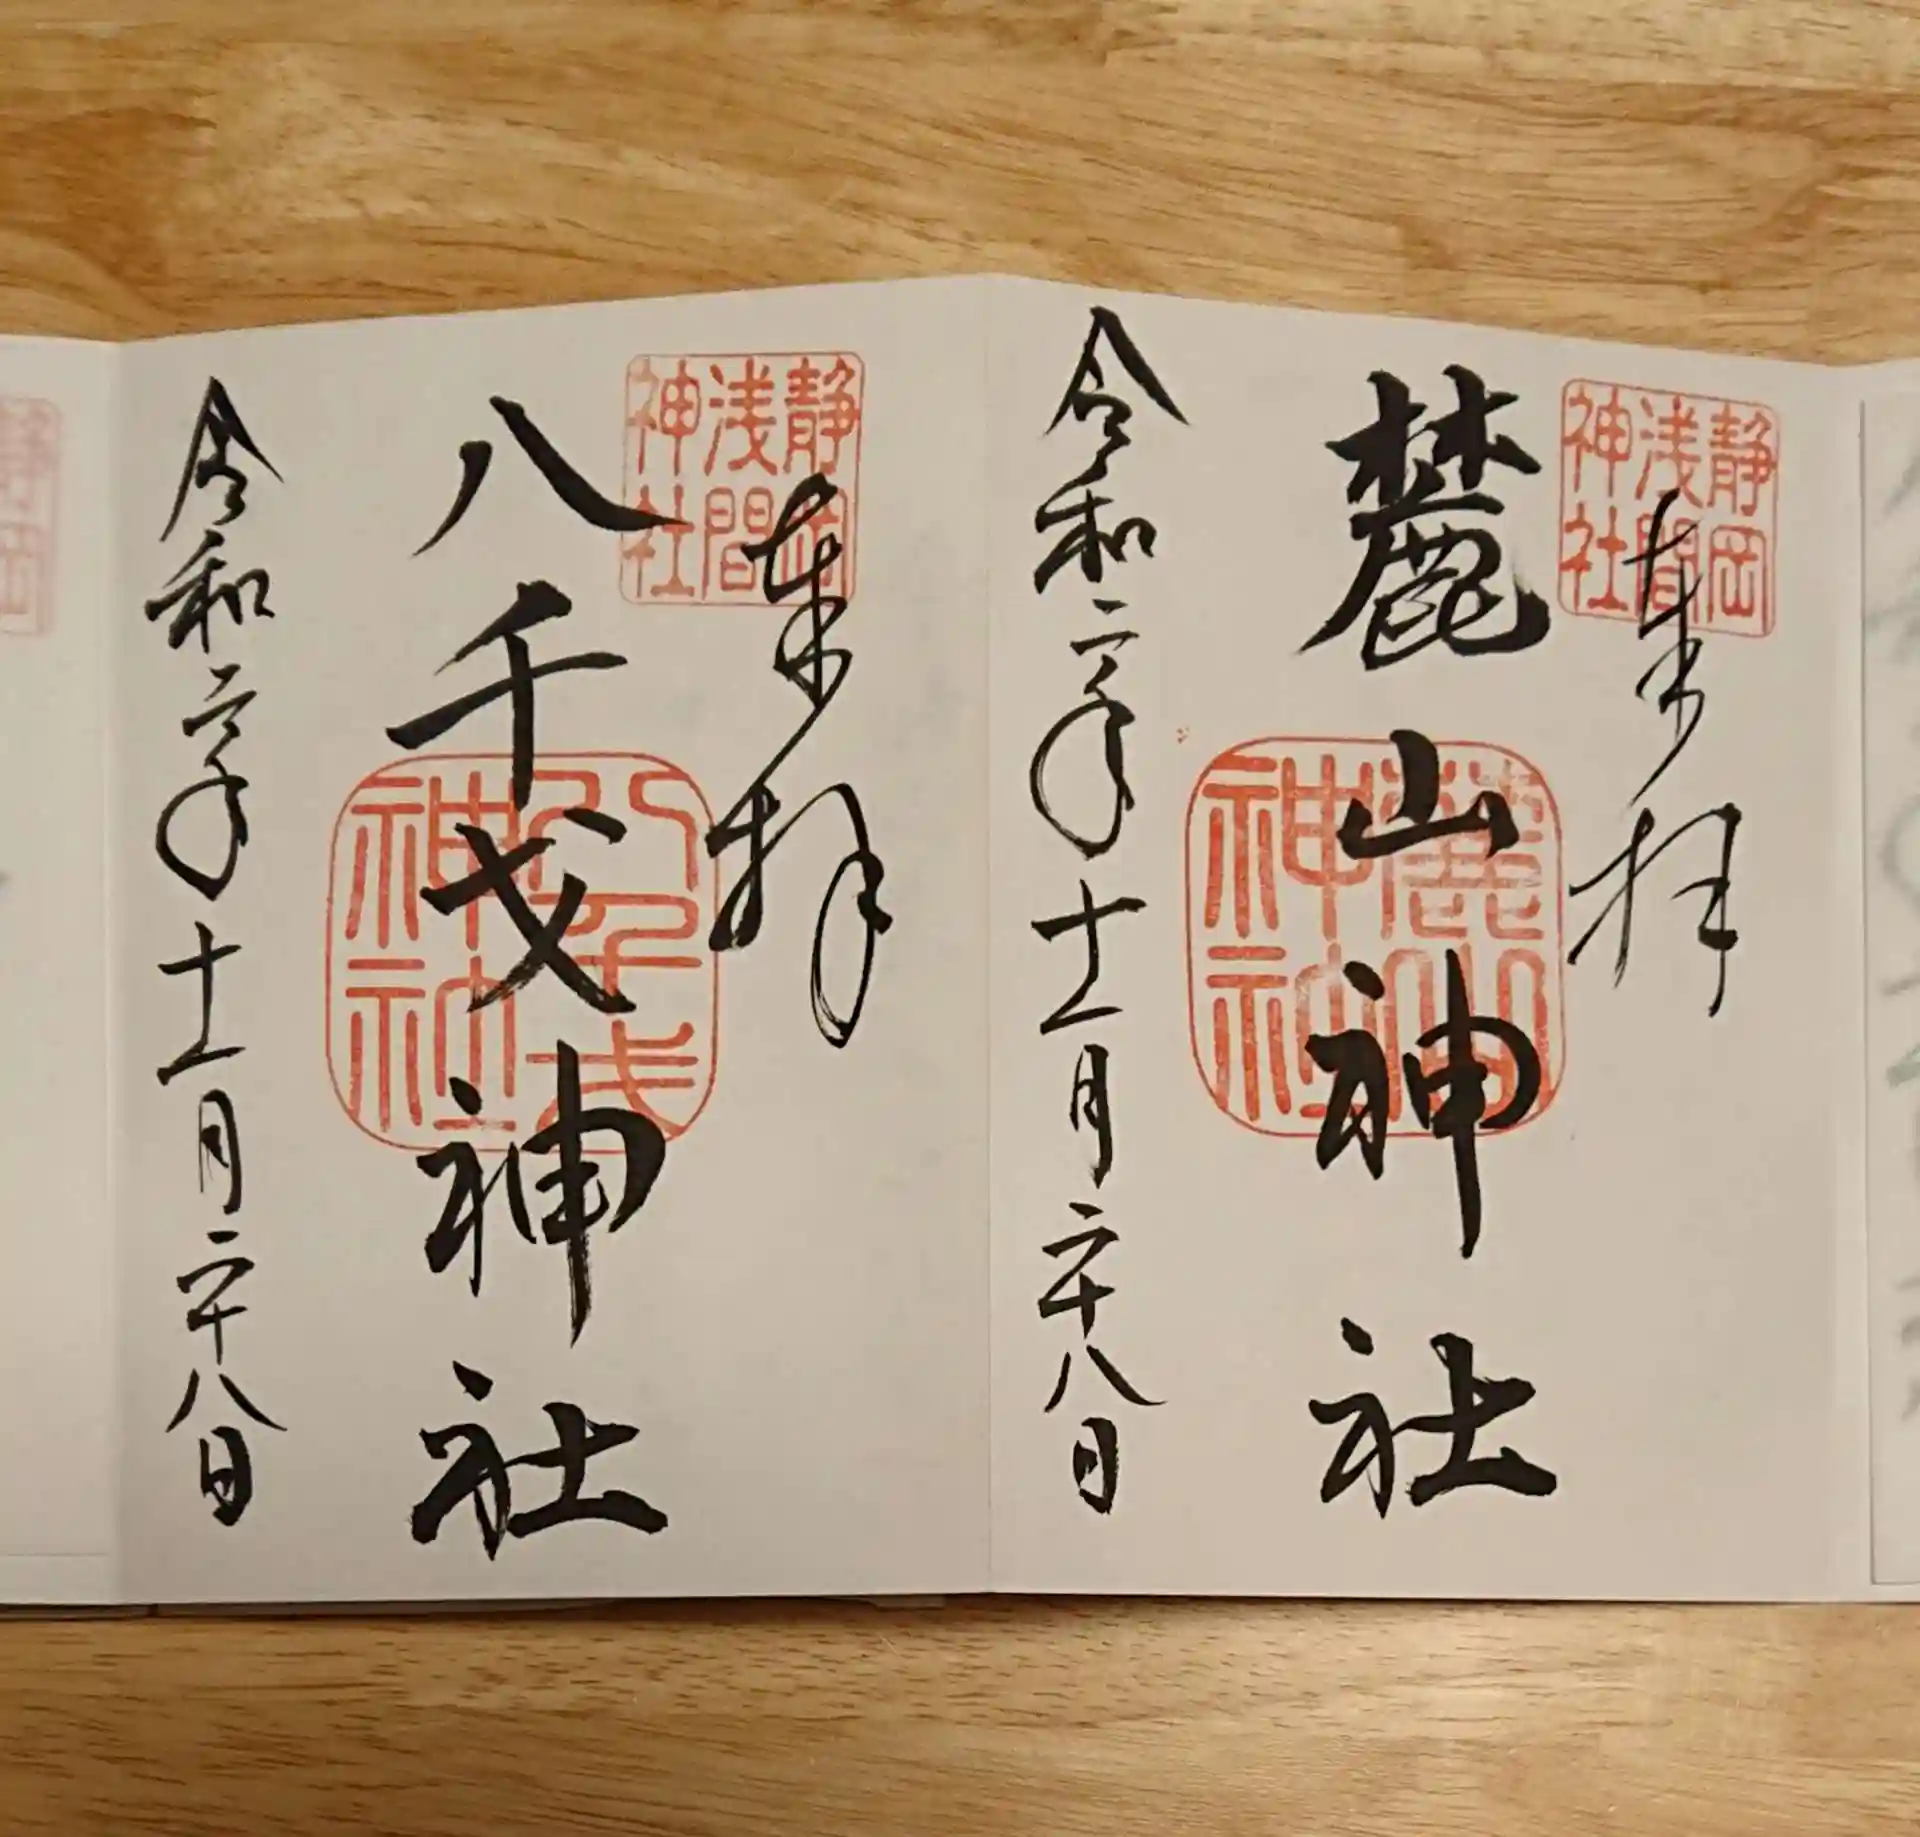 静岡
浅間
神社
奉拝
麓山神社
麓山
神社
令和二年十一月二十八日
静岡
浅間
神社
奉拝
八千戈神社
八千戈
神社
令和二年十一月二十八日
静岡